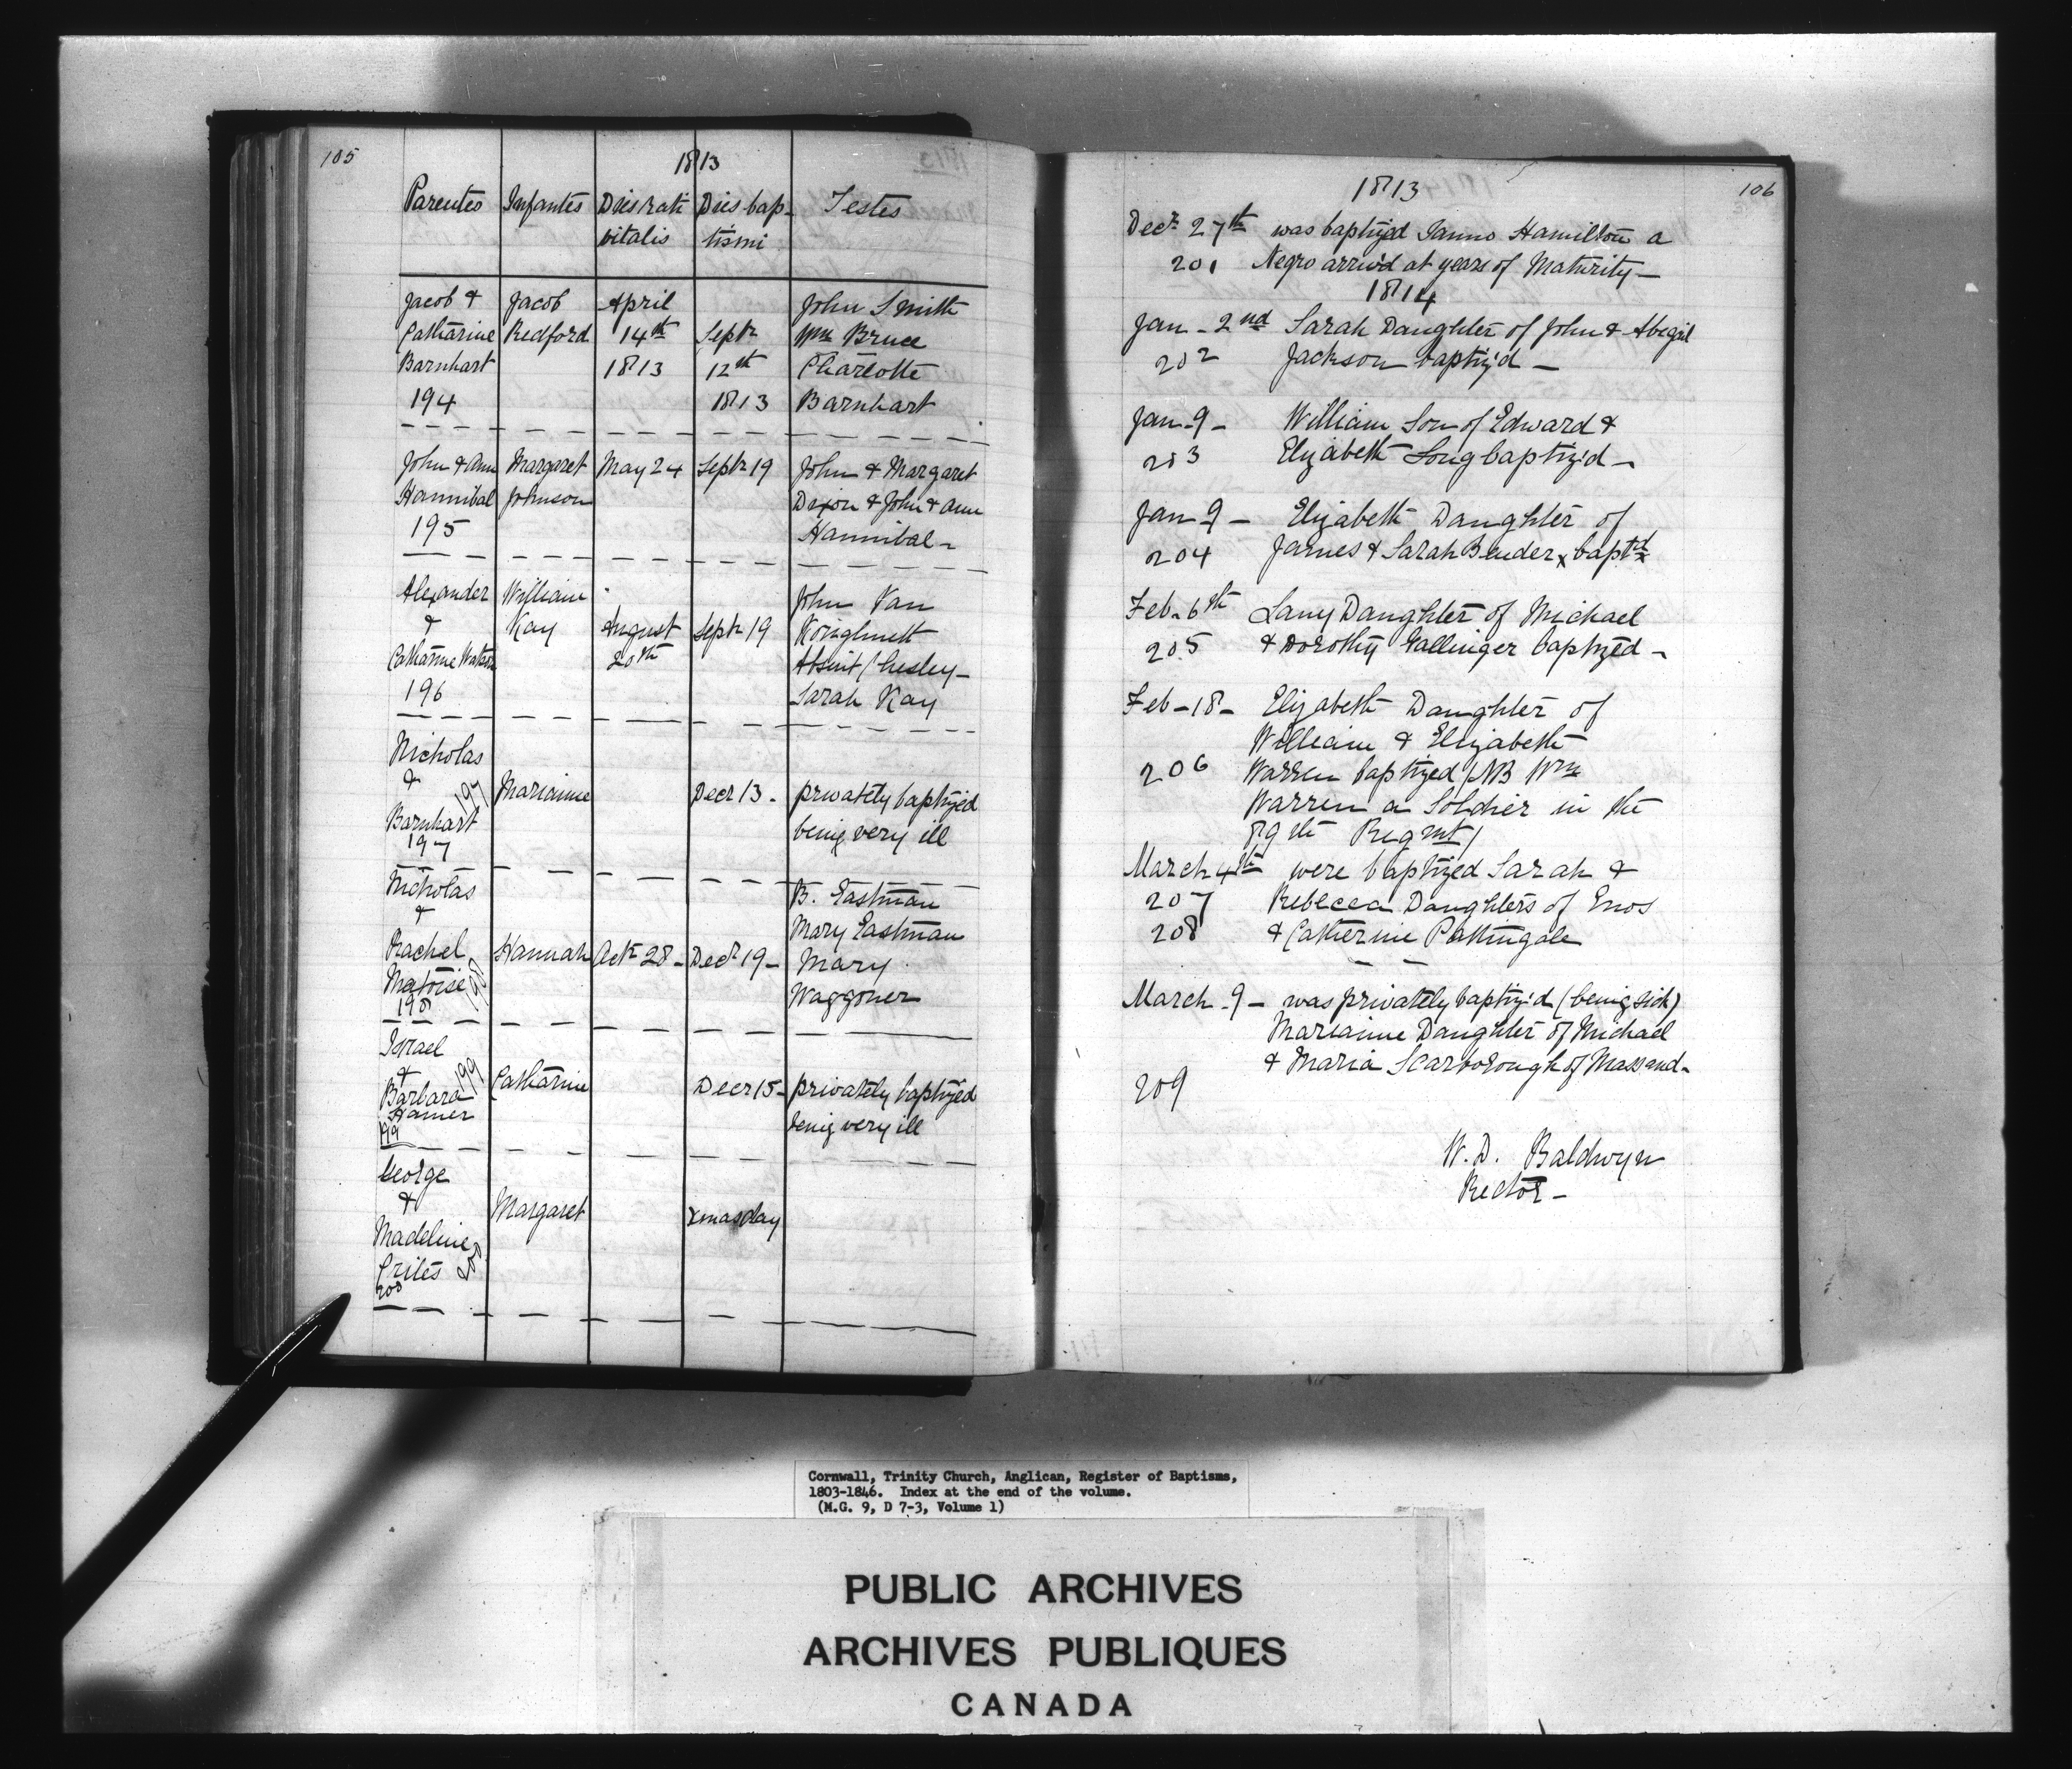 105
1813
Parentes Infantes Dies nati Dies bap-
vitalis tismi
Testes
Jacob & Jacob April John Smith
Catharine Redford 14th Septr Wm Bruce
Barnhart 1813 12th Charlotte
194 1813 Barnhart
John & Ann Margaret May 24 Septr 19 John & Margaret
Hannibal Johnson Dixon & John & Ann
195 Hannibal -
Alexander William John Van
& Kay August Septr 19
Catharine Watson 20th Absint
196 Sarah Kay
Nicholas
& 197 Marianne Decr 13 - privately baptized
Barnhart being very ill
197
Nicholas B. Eastman
& Mary Eastman
Rachel Hannah Octr 28 - Decr 19 - Mary
198 Waggoner
198
Israel
& 199 Catharine Decr 15 - privately baptized
Barbara being very ill
Hamer
199
George
& Margaret Xmasday
Madeline
Criles 200
200
1813 106
Decr 27th was baptized Hamilton a
201 Negro arriv'd at years of Maturity -
1814
Jan - 2nd Sarah Daughter of John & Abegail
202 Jackson baptiz'd -
Jan - 9 - William Son of Edward &
203 Elizabeth Long baptiz'd -
Jan 9 - Elizabeth Daughter of
204 James & Sarah Bender x baptd
Feb - 6th Lany Daughter of Michael
205 & Dorothy Gallinger baptized -
Feb - 18 - Elizabeth Daughter of
William & Elizabeth
206 Warren baptized / NB Wm
Warren a Soldier in the
89th Regmt /
March 4th were baptized Sarah &
207 Rebecca Daughters of Enos
208 & Catherine Pattingale
March - 9 - was privately baptiz'd (being sick)
Marianne Daughter of Michael
& Maria Scarborough of Massend -
209
W. D. Baldwyn
Rector -
Cornwall, Trinity Church, Anglican, Register of Baptisms,
1803-1846. Index at the end of the volume.
(M.G. 9, D 7-3, Volume 1)
PUBLIC ARCHIVES
ARCHIVES PUBLIQUES
CANADA